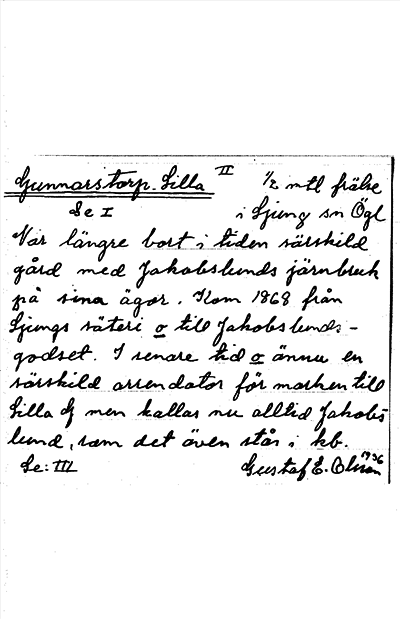 Gunnarstorp. Lilla II 1/2 mtl frälse
Se I i Ljung sn Ögl
Var längre bort i tiden särskild
gård med Jakobslunds järnbruk
på sina ägor. Kom 1868 från
Ljungs säteri o till Jakobslunds-
godset. I senare tid o ännu en
särskild arrendator för marken till
Lilla G men kallas nu alltid Jakobs
lund, som det även står i kb.
Se: III Gustaf E. Olsson 1936